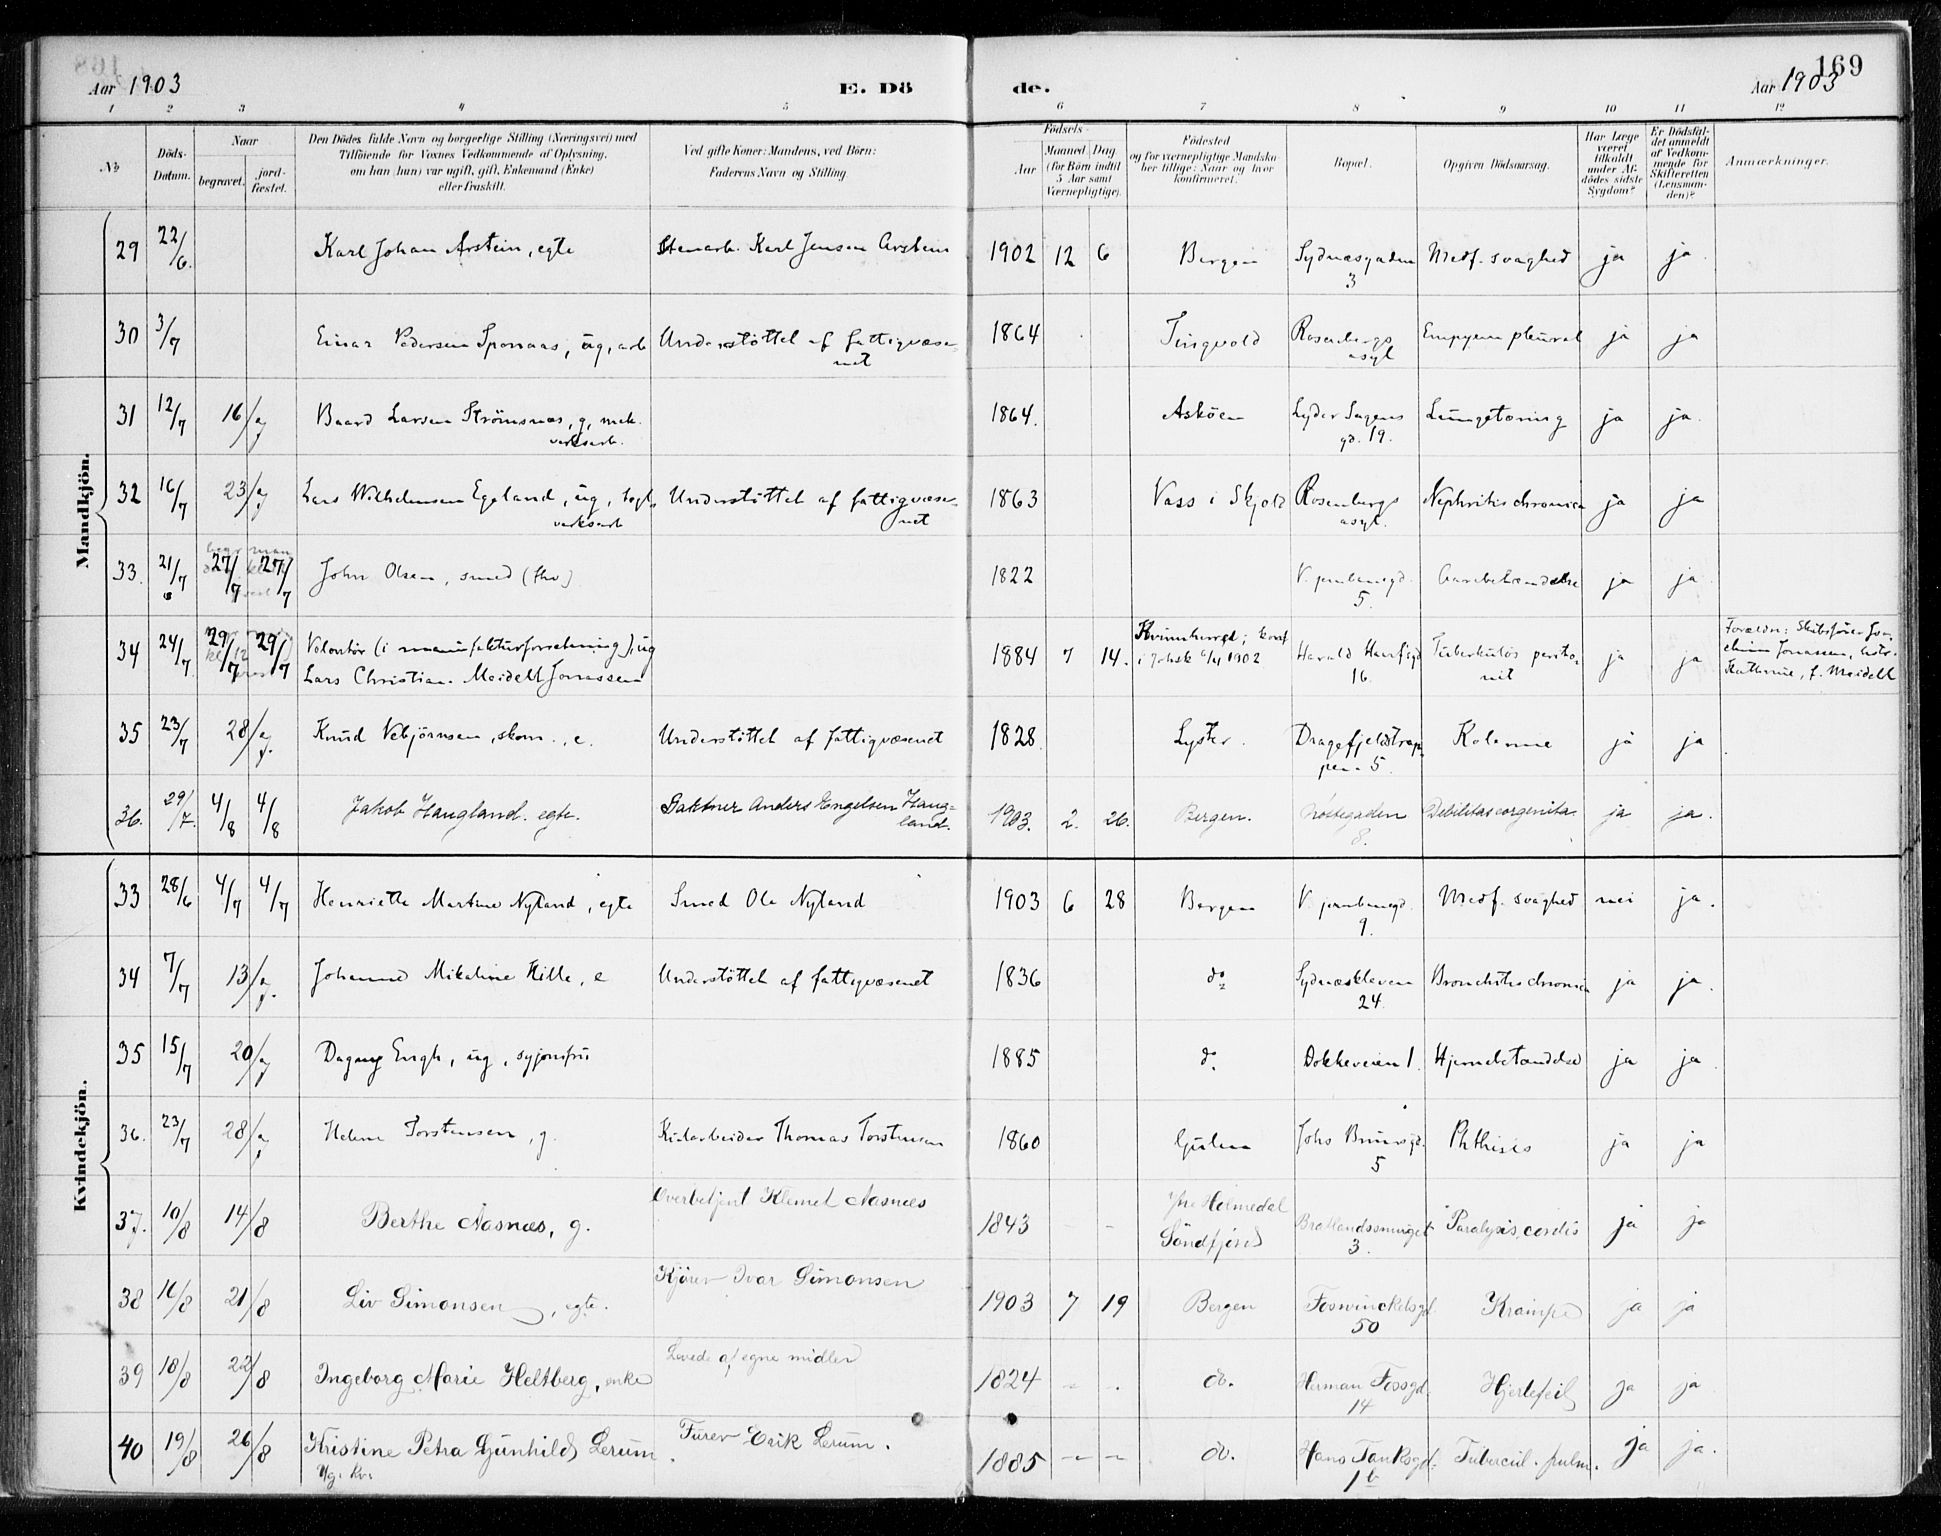 169
Aar 1903 E. Dö de. Aar 1903
1 2 3 4 5 6 7 8 9 10 11 12
No. Döds-Datum. Naar begravet. jordfæstet. Den Dödes fulde Navn og borgerlige Stilling (Næringsvei) med Tilföiende for Voxnes Vedkommende af Oplysning, om han (hun) var ugift, gift, Enkemand (Enke) eller fraskilt. Ved gifte Koner: Mandens, ved Börn: Faderens Navn og Stilling. Födsels- Aar Maaned Dag (for Börn indtil 5 Aar samt Værnepligtige). Födested og for værnepligtige Mandskaber tillige: Naar og hvor konfirmeret. Bopæl. Opgiven Dödsaarsag. Har Læge været tilkaldt under Afdödes sidste Sygdom? Er Dödsfaldet anmeldt af Vedkommende for Skifteretten (Lensmanden)? Anmærkninger.
Mandkjön.
29 22/6. Karl Johan Arstein, egte Stenarb. Karl Jensen Arstein 1902 12 6 Bergen Sydnæsgaden 3 Medf. svaghed ja ja
30 3/7 Einar Pedersen Sponaas, ug, arb Understöttet af fattigvæsenet 1864 Tingvold Rosenbergs asyl Empyem pleural ja ja
31 12/7 16/7 Baard Larsen Strömsnæs, g, mek. verksarb. 1864. Asköen Lyder Sagens gd. 19. Lungetæring ja ja.
32 16/7 23/7 Lars Wilhelmsen Egeland, ug, verksarb Understöttet af fattigvæsenet 1863 Vass i Skjold Rosenbergs asyl. Nephritis chronica ja ja
33. 21/7 27/7 27/7 John Olsen, smed 1822 5. ja ja
34 24/7 29/7 29/7 Volontör (i manufakturforretning), ug
Lars Christian Meidell Jonassen 1884 7 14. 1902 Harald Haarfgd 16 Tuberkulös peritonit ja ja Jonassen, Kathrine, f. Meidell
35 23/7 28/7 Knud Vebjörnsen, skom., e. Understöttet af fattigvæsenet 1828 Lyster. Dragefjeldstrappen 5 ja ja
36. 29/7. 4/8 4/8 Jakob Haugland. egte. Anders Engelsen Haugland. 1903. 2. 26. Bergen. Nöstegaden 8. Debilitas congenita. ja ja.
Kvindekjön.
33 28/6 4/7 4/7 Henriette Martine Nyland, egte Smed Ole Nyland 1903 6 28 Bergen 9. Medf. svaghed nei ja.
34 7/7 13/7 Johanne Mikaline Hille, e Understöttet af fattigvæsenet 1836 do Sydnæskleven 24. Bronchitis chronica ja ja.
35 15/7 20/7 Dagny Engh, ug, syjomfru 1885 do. Dokkeveien 1. Hjernebetændelse ja ja
36. 23/7 28/7 Helene Torstensen, g. Thomas Torstensen 1860 Gulen Johs Bruunsgd. 5 Phthisis ja ja
37. 10/8 14/8 Berthe Aasnæs, g. Overbetjent Klemet Aasnæs 1843 - - Holmedal Söndfjord 3. Paralysis cordis ja ja
38 16/8 21/8 Liv Simonsen, egte. Kjörer Ivar Simonsen 1903 7 19 Bergen Foswinckelsgd. 50 Krampe ja ja
39 18/8 22/8 Ingeborg Marie Heltberg, enke Levede af egne midler 1824 - . do. Herman Fossgd. 14 Hjertefeil ja ja
40 19/8 26/8 Kristine Petra Gunhild Lerum. Furer Erik Lerum. 1885 - - do. Hans Tanksgd. 1b Tubercul. pulm. ja ja.